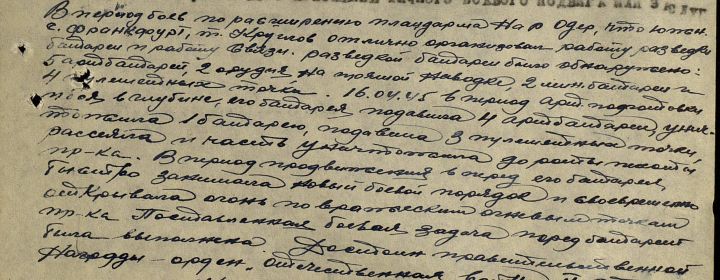 личного боевого подвига или заслуг
В период боев по расширению плацдарма на р. Одер, что южн.
г. Франкфурт, т. Круглов отлично организовал работу разведки
батареи и работу связи. разведкой батареи было обнаружено:
5 артбатарей, 2 орудия на прямой наводке, 2 мин. батареи и
4 пулеметных точки. 16.04.45 в период арт. подготовки
боя в глубине, его батарея подавила 4 артбатареи, унич-
тожила 1 батарею, подавила 3 пулеметных точки,
рассеяла и часть уничтожила до роты пехоты
пр-ка. В период продвижения в перед его батарея,
быстро занимала новый боевой порядок и своевременно
открывала огонь по вражеским огневым точкам
пр-ка Поставленная боевая задача перед батареей
была выполнена. Достоин правительственной
Награды - орден, Отечественная